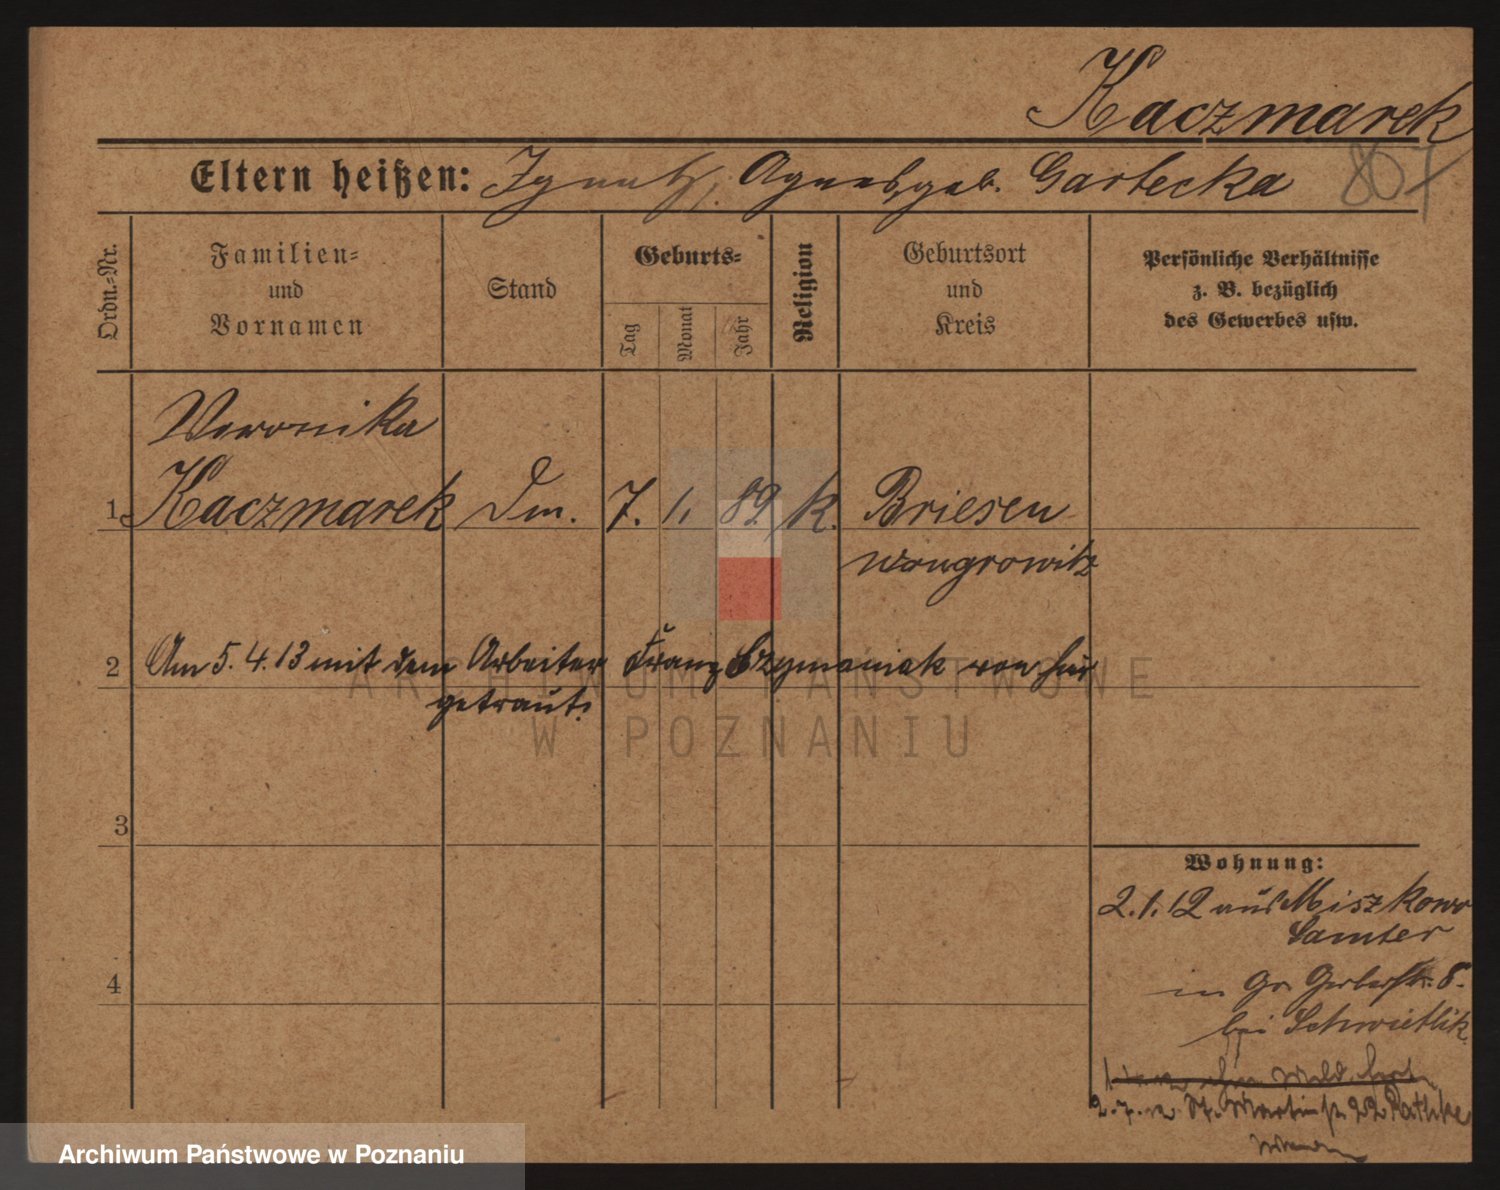 Kaczmarek
807
Eltern heißen: Ignatz, Agnes, geb. Garbecka
Ordn.-Nr.
Familien=
und
Vornamen
Stand
Geburts=
Tag
Monat
Jahr
Religion
Geburtsort
und
Kreis
Persönliche Verhältnisse
z. B. bezüglich
des Gewerbes usw.
Veronika
1 Kaczmarek Dm. 7. 1. 89 k. Briesen
Wongrowitz
2 Am 5. 4. 13 mit dem Arbeiter Franz Szymaniak von hier
getraut.
3
4
Wohnung:
2. 1. 12 aus Miszkowo
Samter
in Gr. Gerberstr. 8.
bei Schwietlik
2. 7. 12 St. Martinstr. 22 Rathke
ARCHIWUM PAŃSTWOWE
W POZNANIU
Archiwum Państwowe w Poznaniu